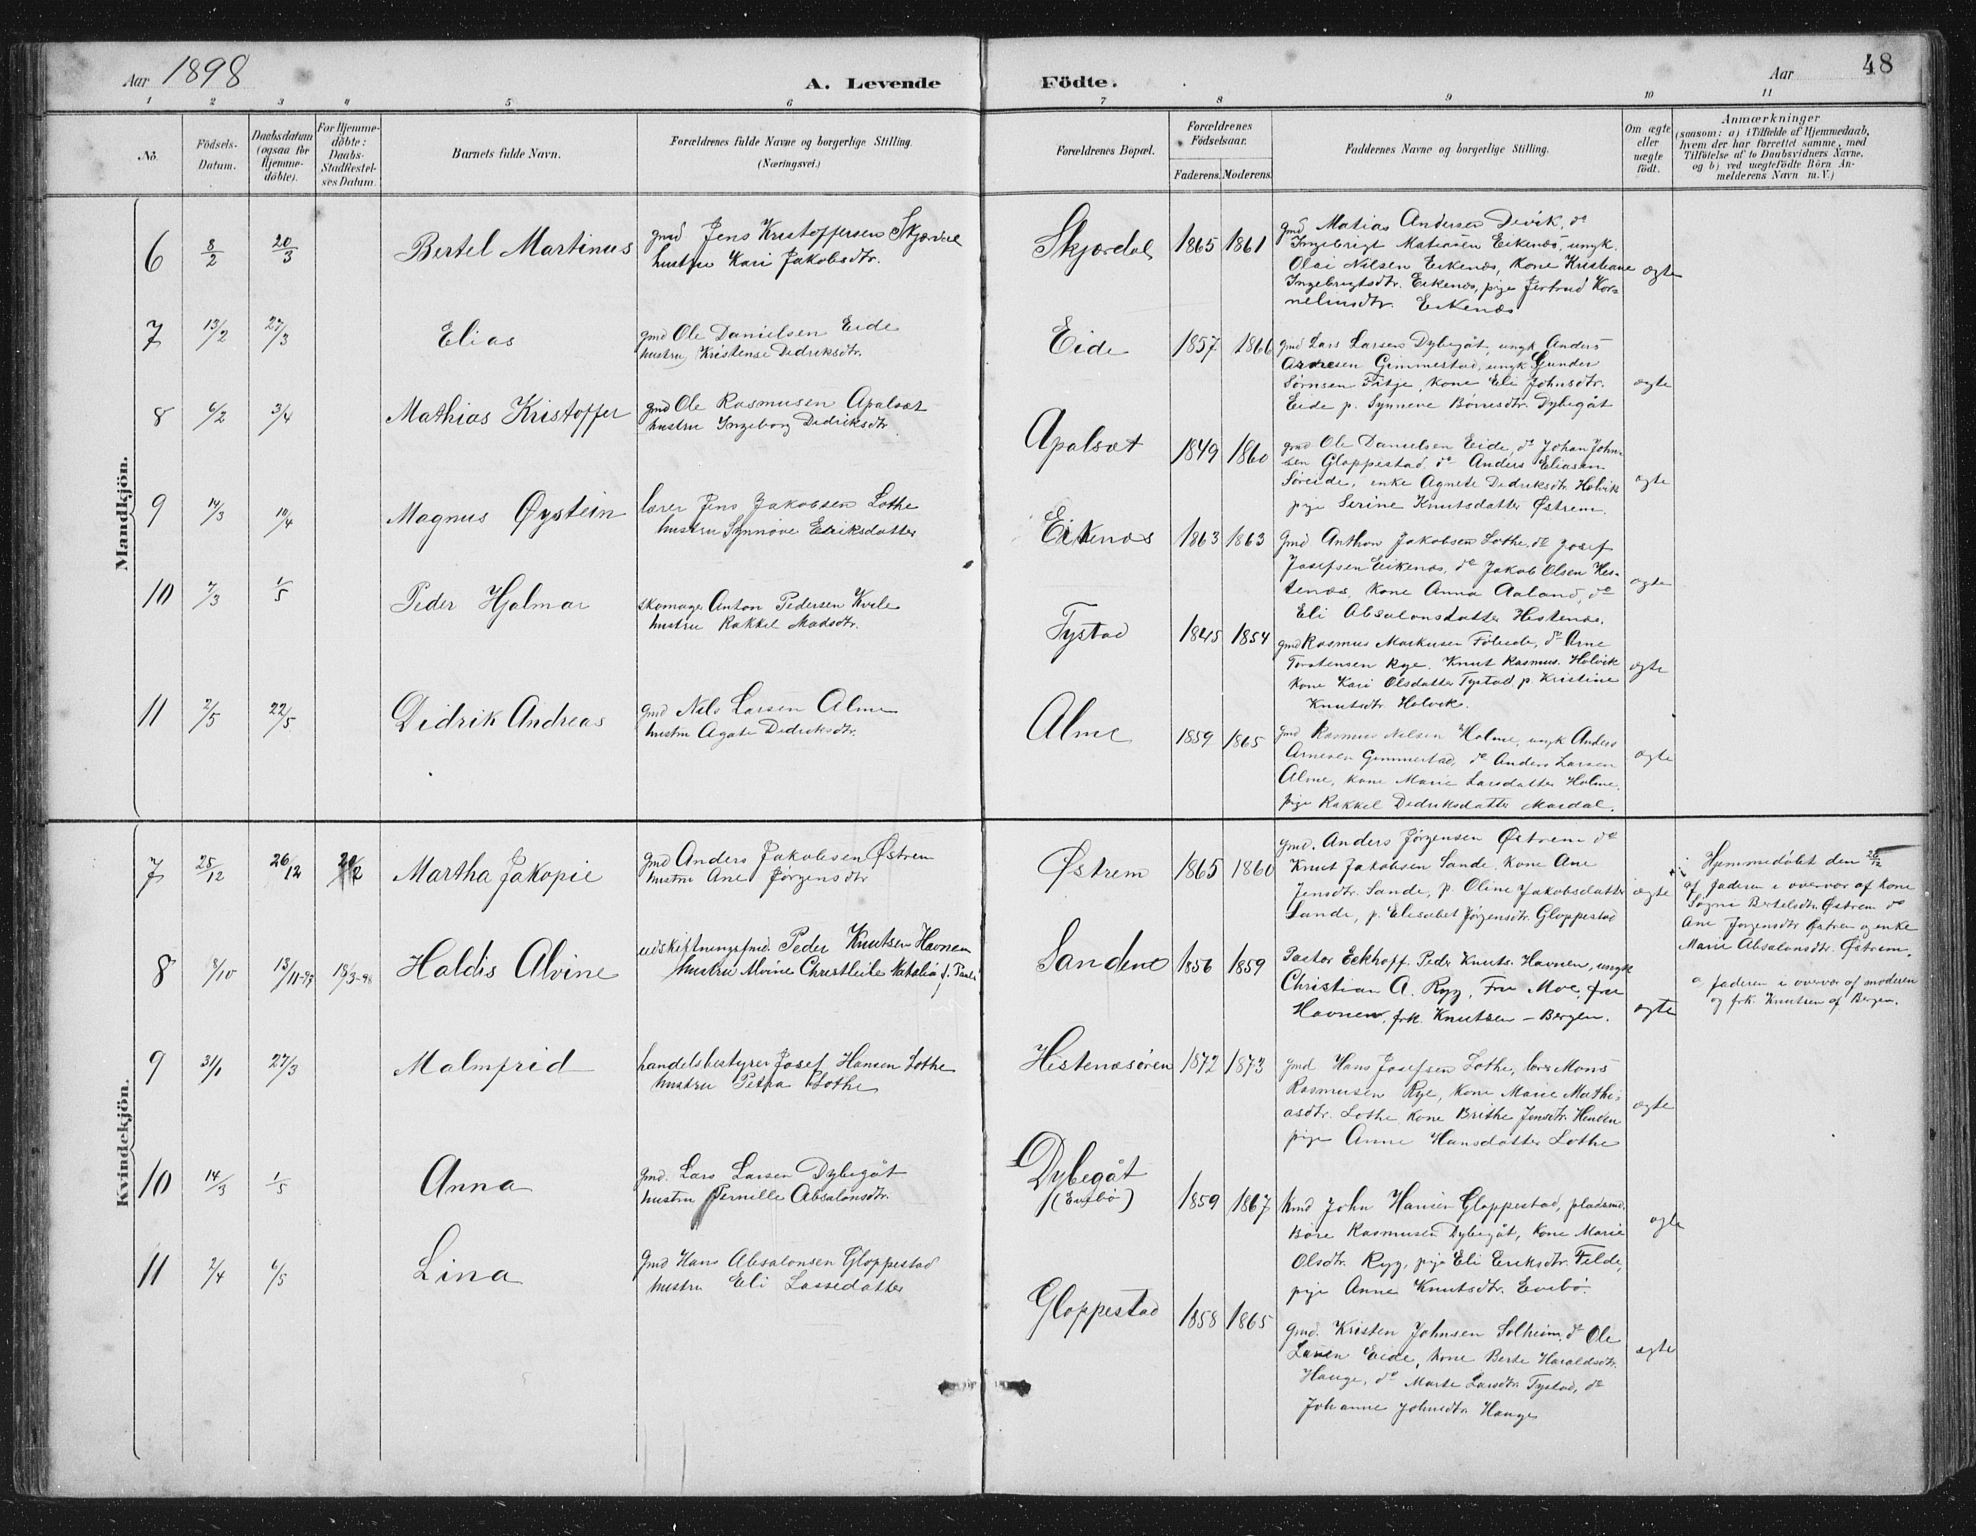 Aar 1898
A. Levende Födte.
Aar
48
1 2 3 4 5 6 7 8 9 10 11
No.
Födsels-Datum.
Daabsdatum (ogsaa for Hjemme-döbte).
For Hjemme-döbte: Daabs-Stadfæstel-ses Datum.
Barnets fulde Navn.
Forældrenes fulde Navne og borgerlige Stilling.
(Næringsvei.)
Forældrenes Bopæl.
Forældrenes Födselsaar.
Faderens. Moderens.
Faddernes Navne og borgerlige Stilling.
Om ægte eller uægte födt.
Anmærkninger
(saasom: a) i Tilfælde af Hjemmedaab,
hvem der har forrettet samme, med
Tilföielse af to Daabsvidners Navne,
og b) ved uægtefödte Börn An-
melderens Navn m. V.)
Mandkjön.
6 8/2 20/3 Bertel Martinus
gmd Jens Kristoffersen Skjærdal
hustru Kari Jakobsdtr.
Skjærdal 1865 1861
gmd Matias Andersen Devik, do
Ingebrigt Matiasen Eikenæs, ungk.
Olai Nilsen Eikenæs, kone Kristiane
Ingebrigtsdtr. Eikenæs, pige Jertrud Kor-
neliusdtr. Eikenæs
ægte
7 13/2 27/3 Elias
gmd Ole Danielsen Eide
hustru Kristense Didriksdtr.
Eide 1857 1866
gmd Lars Larsen Dybegåt, ungk Anders
Andresen Gimmestad, ungk Gunder
Sørnsen Fitje, kone Eli Johnsdtr.
Eide p. Synneve Børresdtr. Dybegåt
ægte
8 6/2 3/4 Mathias Kristoffer
gmd Ole Rasmusen Apalsæt
hustru Ingeborg Didriksdtr
Apalsæt 1849 1860
gmd Ole Danielsen Eide, do Johan John-
sen Gloppestad, do Anders Eliasen
Søreide, enke Agnete Didriksdtr Holvik
pige Serine Knutsdatter Østrem.
ægte
9 14/3 10/4 Magnus Øystein
lærer Jens Jakobsen Lothe
hustru Synnøve Eriksdatter
Eikenæs 1863 1863
Gmd Anthon Jakobsen Lothe, do Josef
Josefsen Eikenæs, do Jakob Olsen Hes-
tenæs, kone Anna Aaland, do
Eli Absalonsdatter Hestenæs.
ægte
10 7/3 1/5 Peder Hjalmar
skomager Anton Pedersen Kvele
hustru Rakkel Madsdtr.
Tystad 1845 1854
gmd Rasmus Markusen Føleide, do Arne
Torstensen Rye. Knut Rasmus. Holvik
kone Kari Olsdatter Tystad, p Kristine
Knutsdtr. Holvik.
ægte
11 2/5 22/5 Didrik Andreas
gmd Nils Larsen Alme
hustru Agate Didriksdtr.
Alme 1859 1865
gmd Rasmus Nilsen Holme, ungk Anders
Arnesen Gimmestad, do Anders Larsen
Alme, kone Marie Larsdatter Holme,
pige Rakkel Didriksdatter Mardal.
ægte
Kvindekjön.
7 25/12 26/12 Martha Jakopie
gmd Anders Jakobsen Østrem
hustru Ane Jørgensdtr
Østrem 1865 1860
gmd. Anders Jørgensen Østrem do
Knut Jakobsen Sande, kone Ane
Jensdtr. Sande, p. Oline Jakobsdatter
Sande, p. Elisabet Jørgensdtr. Gloppestad
ægte
Hjemmedøbt den 26/12
af faderen i overvær af kone
Søgni Bertelsdtr. Østrem do
Ane Jørgensdtr Østrem og enke
Marie Absalonsdtr. Østrem.
8 8/10 13/11-97 18/3-98 Haldis Alvine
udskiftningsfmd. Peder Knutsen Havnen
hustru Alvine Christleile Natalia f.
Sandene 1856 1859
Pastor Eckhoff Peder Knuts. Havnen, ungk
Christian A. Ryg, Fru Moe, fru
Havnen, frk. Knutsen – Bergen.
ægte
faderen i overvær af moderen
og frk. Knutsen af Bergen.
9 31/1 27/3 Malmfrid
handelsbestyrer Josef Hansen Lothe
hustru Petra Lothe
Hestenæsøren 1872 1873
gmd Hans Josefsen Lothe, lærer Mons
Rasmusen Rye, kone Marie Mathi-
asdtr. Lothe kone Brithe Jensdtr. Henden
pige Anne Hansdatter Lothe
ægte
10 14/3 1/5 Anna
gmd. Lars Larsen Dybegåt
hustru Pernille Absalonsdtr.
Dybegåt
(Evebø) 1859 1867
Kmd John Hansen Gloppestad, pladsmd.
Børe Rasmusen Dybegåt, kone Marie
Olsdtr. Ryg, pige Eli Eriksdtr. Felde,
pige Anne Knutsdtr. Evebø.
ægte
11 2/4 6/5 Lina
Gmd Hans Absalonsen Gloppestad
hustru Eli Lassedatter
Gloppestad 1858 1865
gmd. Kristen Johnsen Solheim, do Ole
Larsen Eide, kone Berte Haraldsdtr.
Hauge, do Marte Larsdtr. Tystad, do
Johanne Johnsdtr. Hauge
ægte